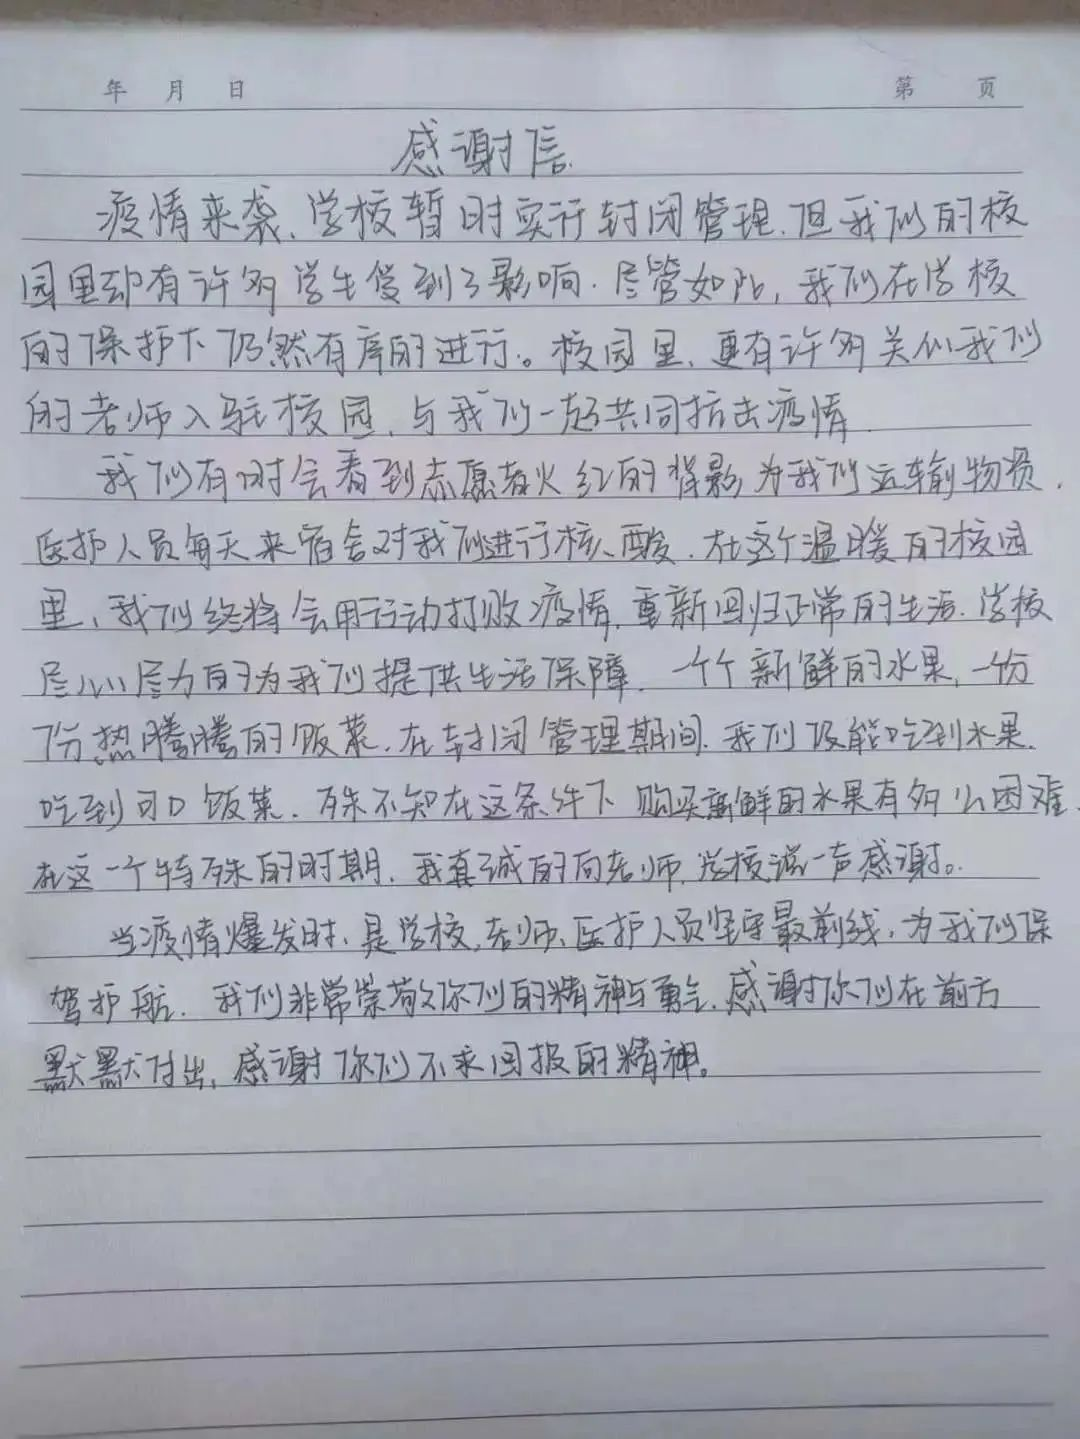 年 月 日 第 页
感谢信
疫情来袭、学校暂时实行封闭管理.但我们的校
园里却有许多学生受到了影响.尽管如此,我们在学校
的保护下仍然有序的进行。校园里、更有许多关心我们
的老师入驻校园、与我们一起共同抗击疫情.
我们有时会看到志愿者火红的背影为我们运输物资.
医护人员每天来宿舍对我们进行核酸.在这个温暖的校园
里、我们终将会用行动打败疫情.重新回归正常的生活.学校
尽心尽力的为我们提供生活保障.一个个新鲜的水果,一份
份热腾腾的饭菜.在封闭管理期间.我们没能吃到水果.
吃到可口饭菜.殊不知在这条件下购买新鲜的水果有多么困难.
在这一个特殊的时期.我真诚的向老师,学校说一声感谢。
当疫情爆发时、是学校,老师、医护人员坚守最前线.为我们保
驾护航.我们非常崇敬你们的精神与勇气.感谢你们在前方
默默付出,感谢你们不求回报的精神。